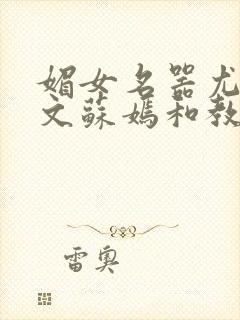 媚女名器尤
文蘇媽和教
雷奥